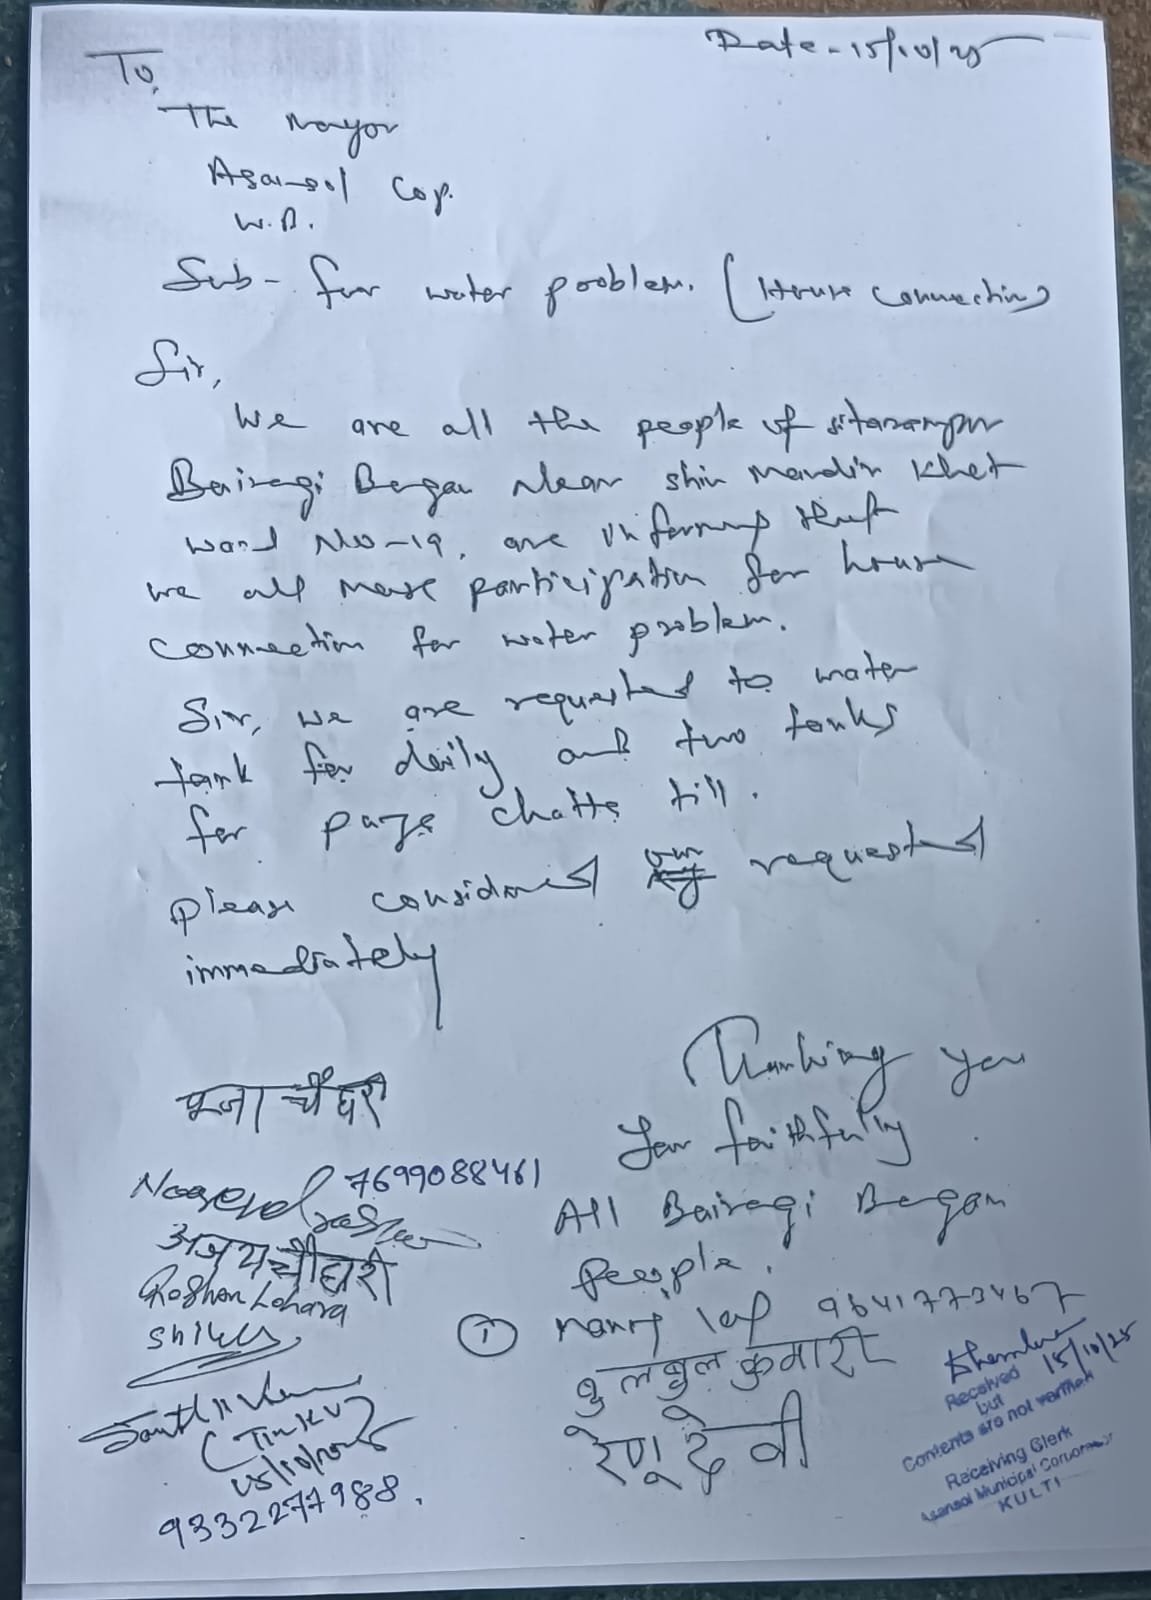 Date - 15/10/25
To,
The Mayor
Asansol Cop.
W.B.
Sub - for water problem. (House connection)
Sir,
We are all the people of sitarampur
Bairagi Bagan Near shiv Mandir Khet
ward No - 19, are informing that
we all mase participation for house
connection for water problem.
Sir, we are requested to water
tank for daily and two tanks
for puze chatte till.
please considered our requested
immediately
Thanking you
Your faithfully
All Bairagi Bagan
people.
① 9641773467
बुलबुल कुमारी
रेणू देवी
पूजा चौधरी
7699088461
अजय चौधरी
Roshan Lohara
(Tinku)
15/10/2025
9332277988.
15/10/25
Received
but
Contents are not verified
Receiving Clerk
Asansol Municipal Corporation
KULTI